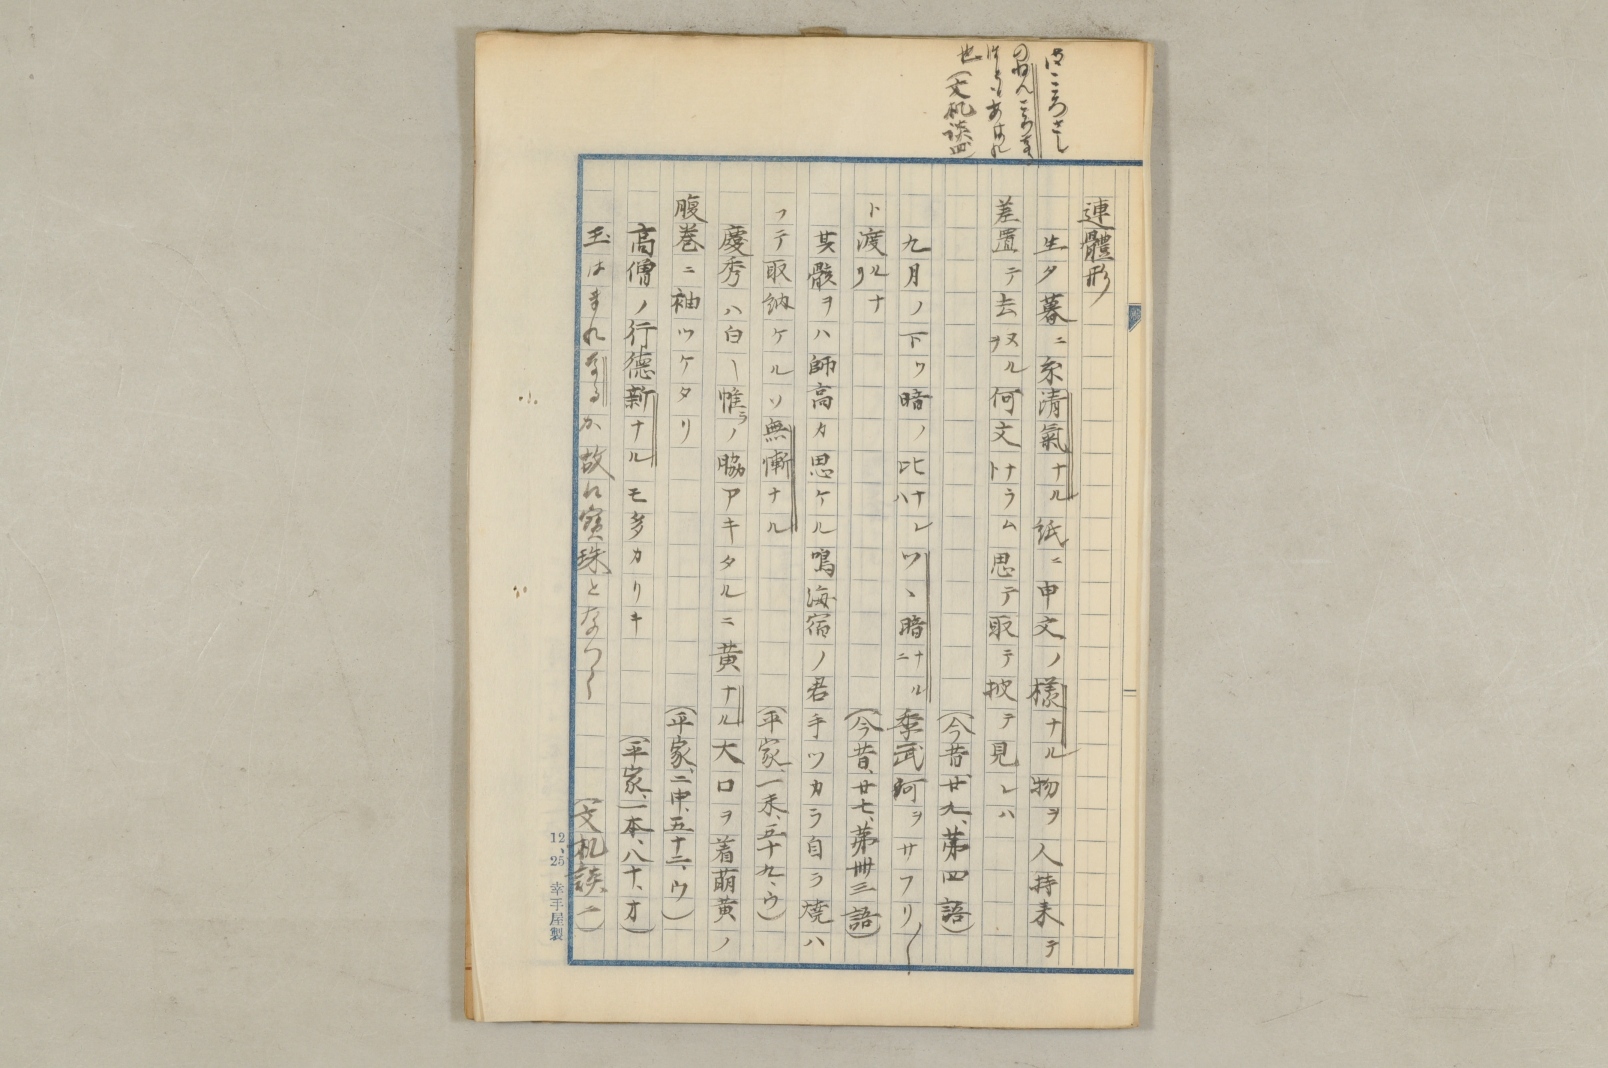 御こゝろさし
のねんころなる
ほともあはれ
也(文机談四)
連體形
生タ暮ニ糸清氣ナル紙ニ申文ノ樣ナル物ヲ人持来テ
差置テ去ヌルヲ何文ナラムト思テ取テ披テ見レハ
(今昔、廿九、第四語)
九月ノ下ツ暗ノ比ナレハツヽ暗ナルニ季武河ヲサフリ〱
ト渡ルナリ
(今昔、廿七、第卌三語)
其骸ヲハ師高カ思ケル鳴海宿ノ君手ツカラ自ラ燒ハ
フテ取納ケルソ無慚ナル
(平家、一末、五十九、ウ)
慶秀ハ白ー帷ラノ脇アキタルニ黄ナル大口ヲ着萌黄ノ
腹巻ニ袖ツケタリ
(平家、二中、五十二、ウ)
高僧ノ行德新ナルモ多カリキ
(平家、一本、八十、オ)
玉はまれなるか故に寳珠となつく
(文机談一)
12、25 幸手屋製